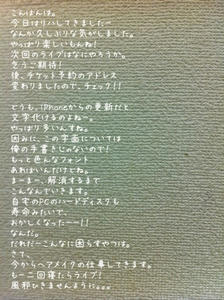 こんばんは。
今日はリハしてきましたー
なんか久しぶりな気がしました。
やっぱり楽しいもんね!
次回のライブはなにやろうか。
乞うご期待!
後、チケット予約のアドレス
変わりましたので、チェック!!
どうも、iPhoneからの更新だと
文字化けするのよねー。
やっぱり多いんすね。
因みに、この字面については
俺の手書きじゃないので!
もっと色んなフォント
あればいんだけどね。
まーまー、解消するまで
こんなんでいきます。
自宅のPCのハードディスクも
寿命みたいで、
おかしくなったーー!!
なんだ。
だれだーこんなに困らすやつは。
さて、
今からヘアメイクの仕事してきます。
もー二回寝たらライブ!
風邪ひきませんように。。。